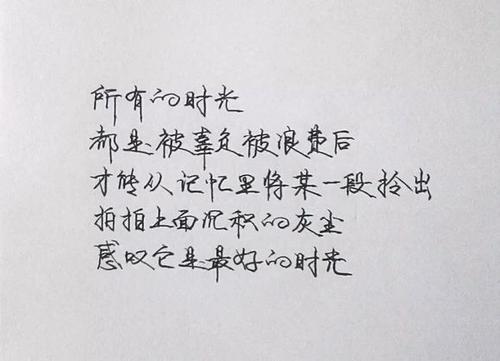 所有的时光
都是被辜负被浪费后
才能从记忆里将某一段拎出
拍拍上面沉积的灰尘
感叹它是最好的时光